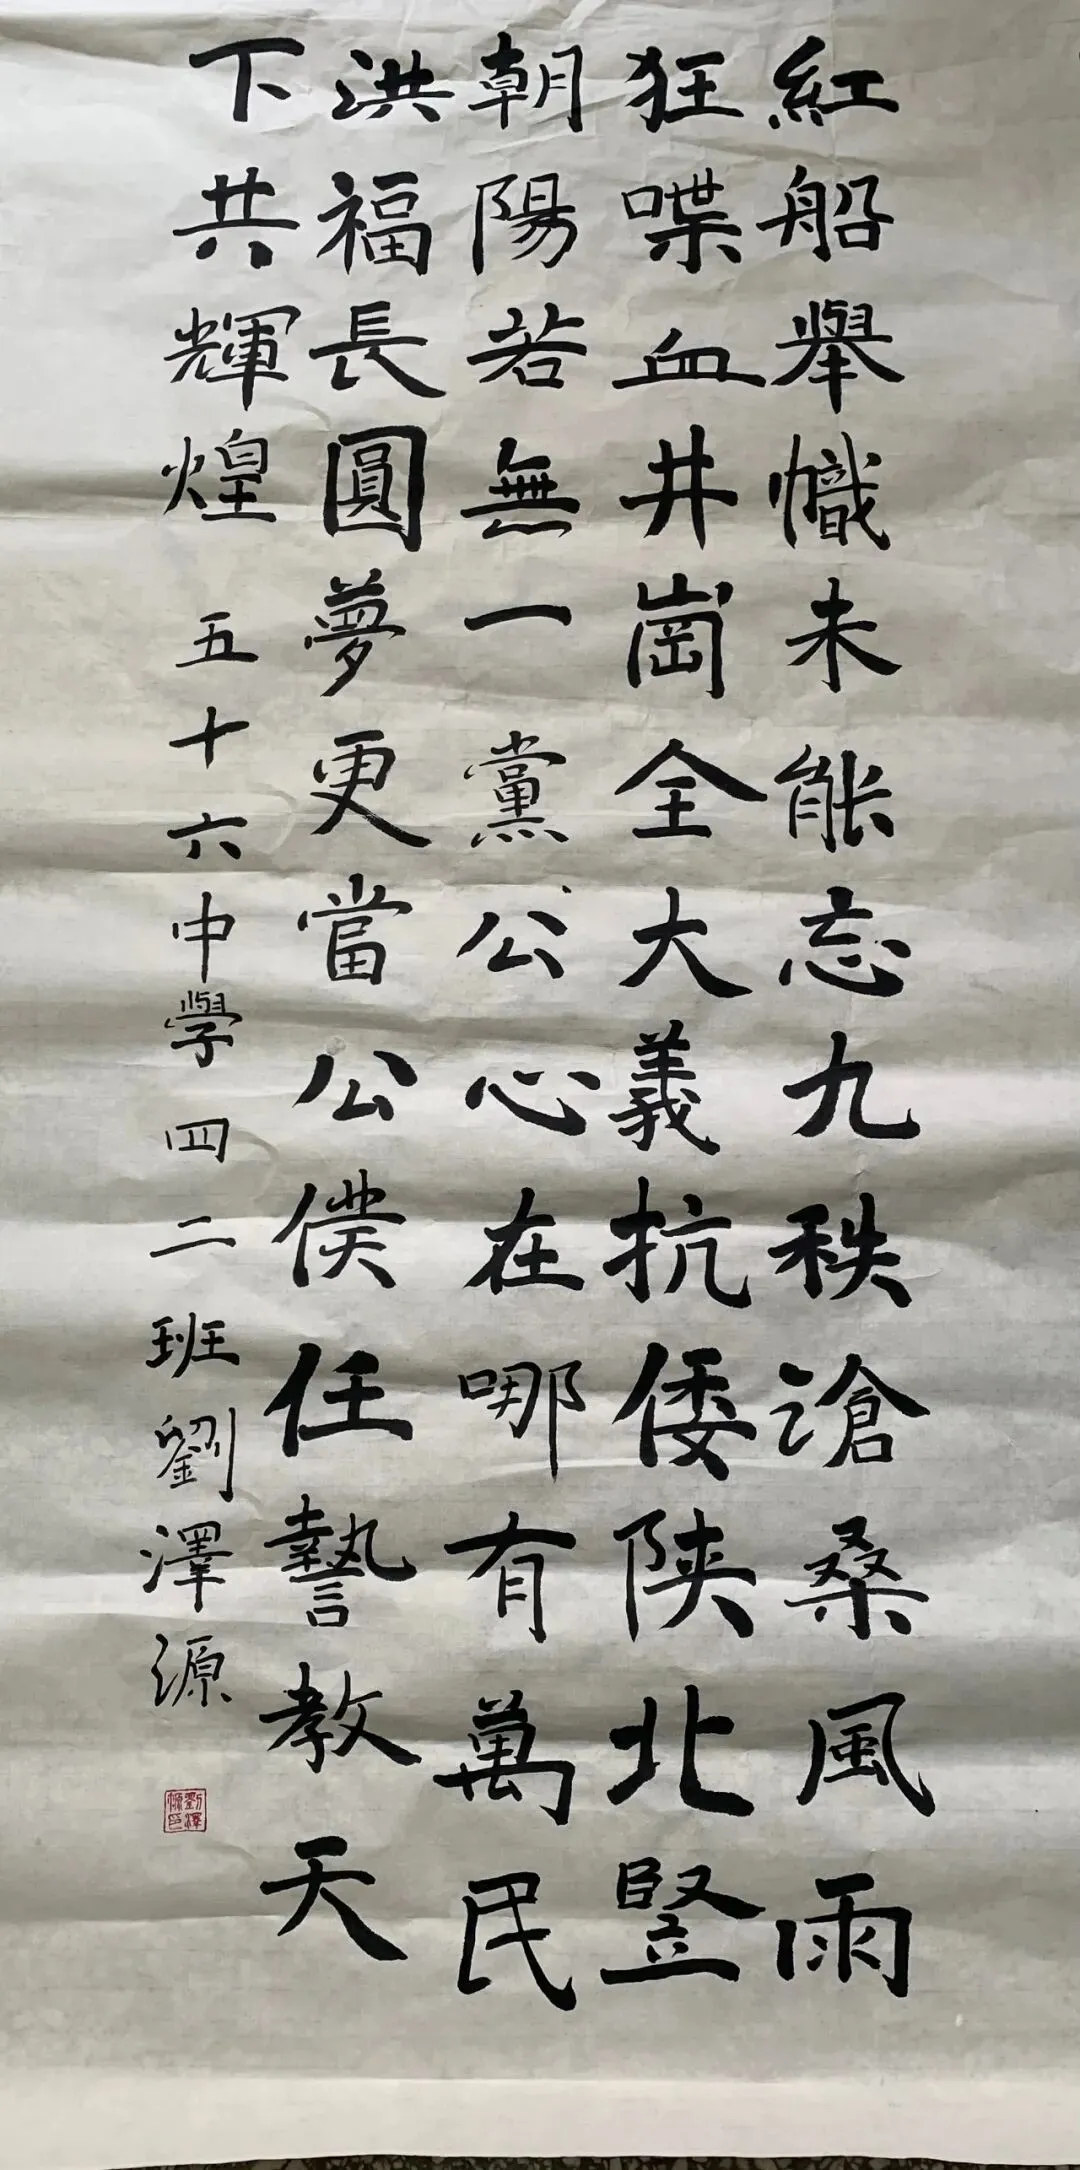 紅船舉幟未能忘九秩滄桑風雨
狂喋血井崗全大義抗倭陝北豎
朝陽若無一黨公心在哪有萬民
洪福長圓夢更當公僕任誓教天
下共輝煌 五十六中學四二班劉澤源
劉澤源印